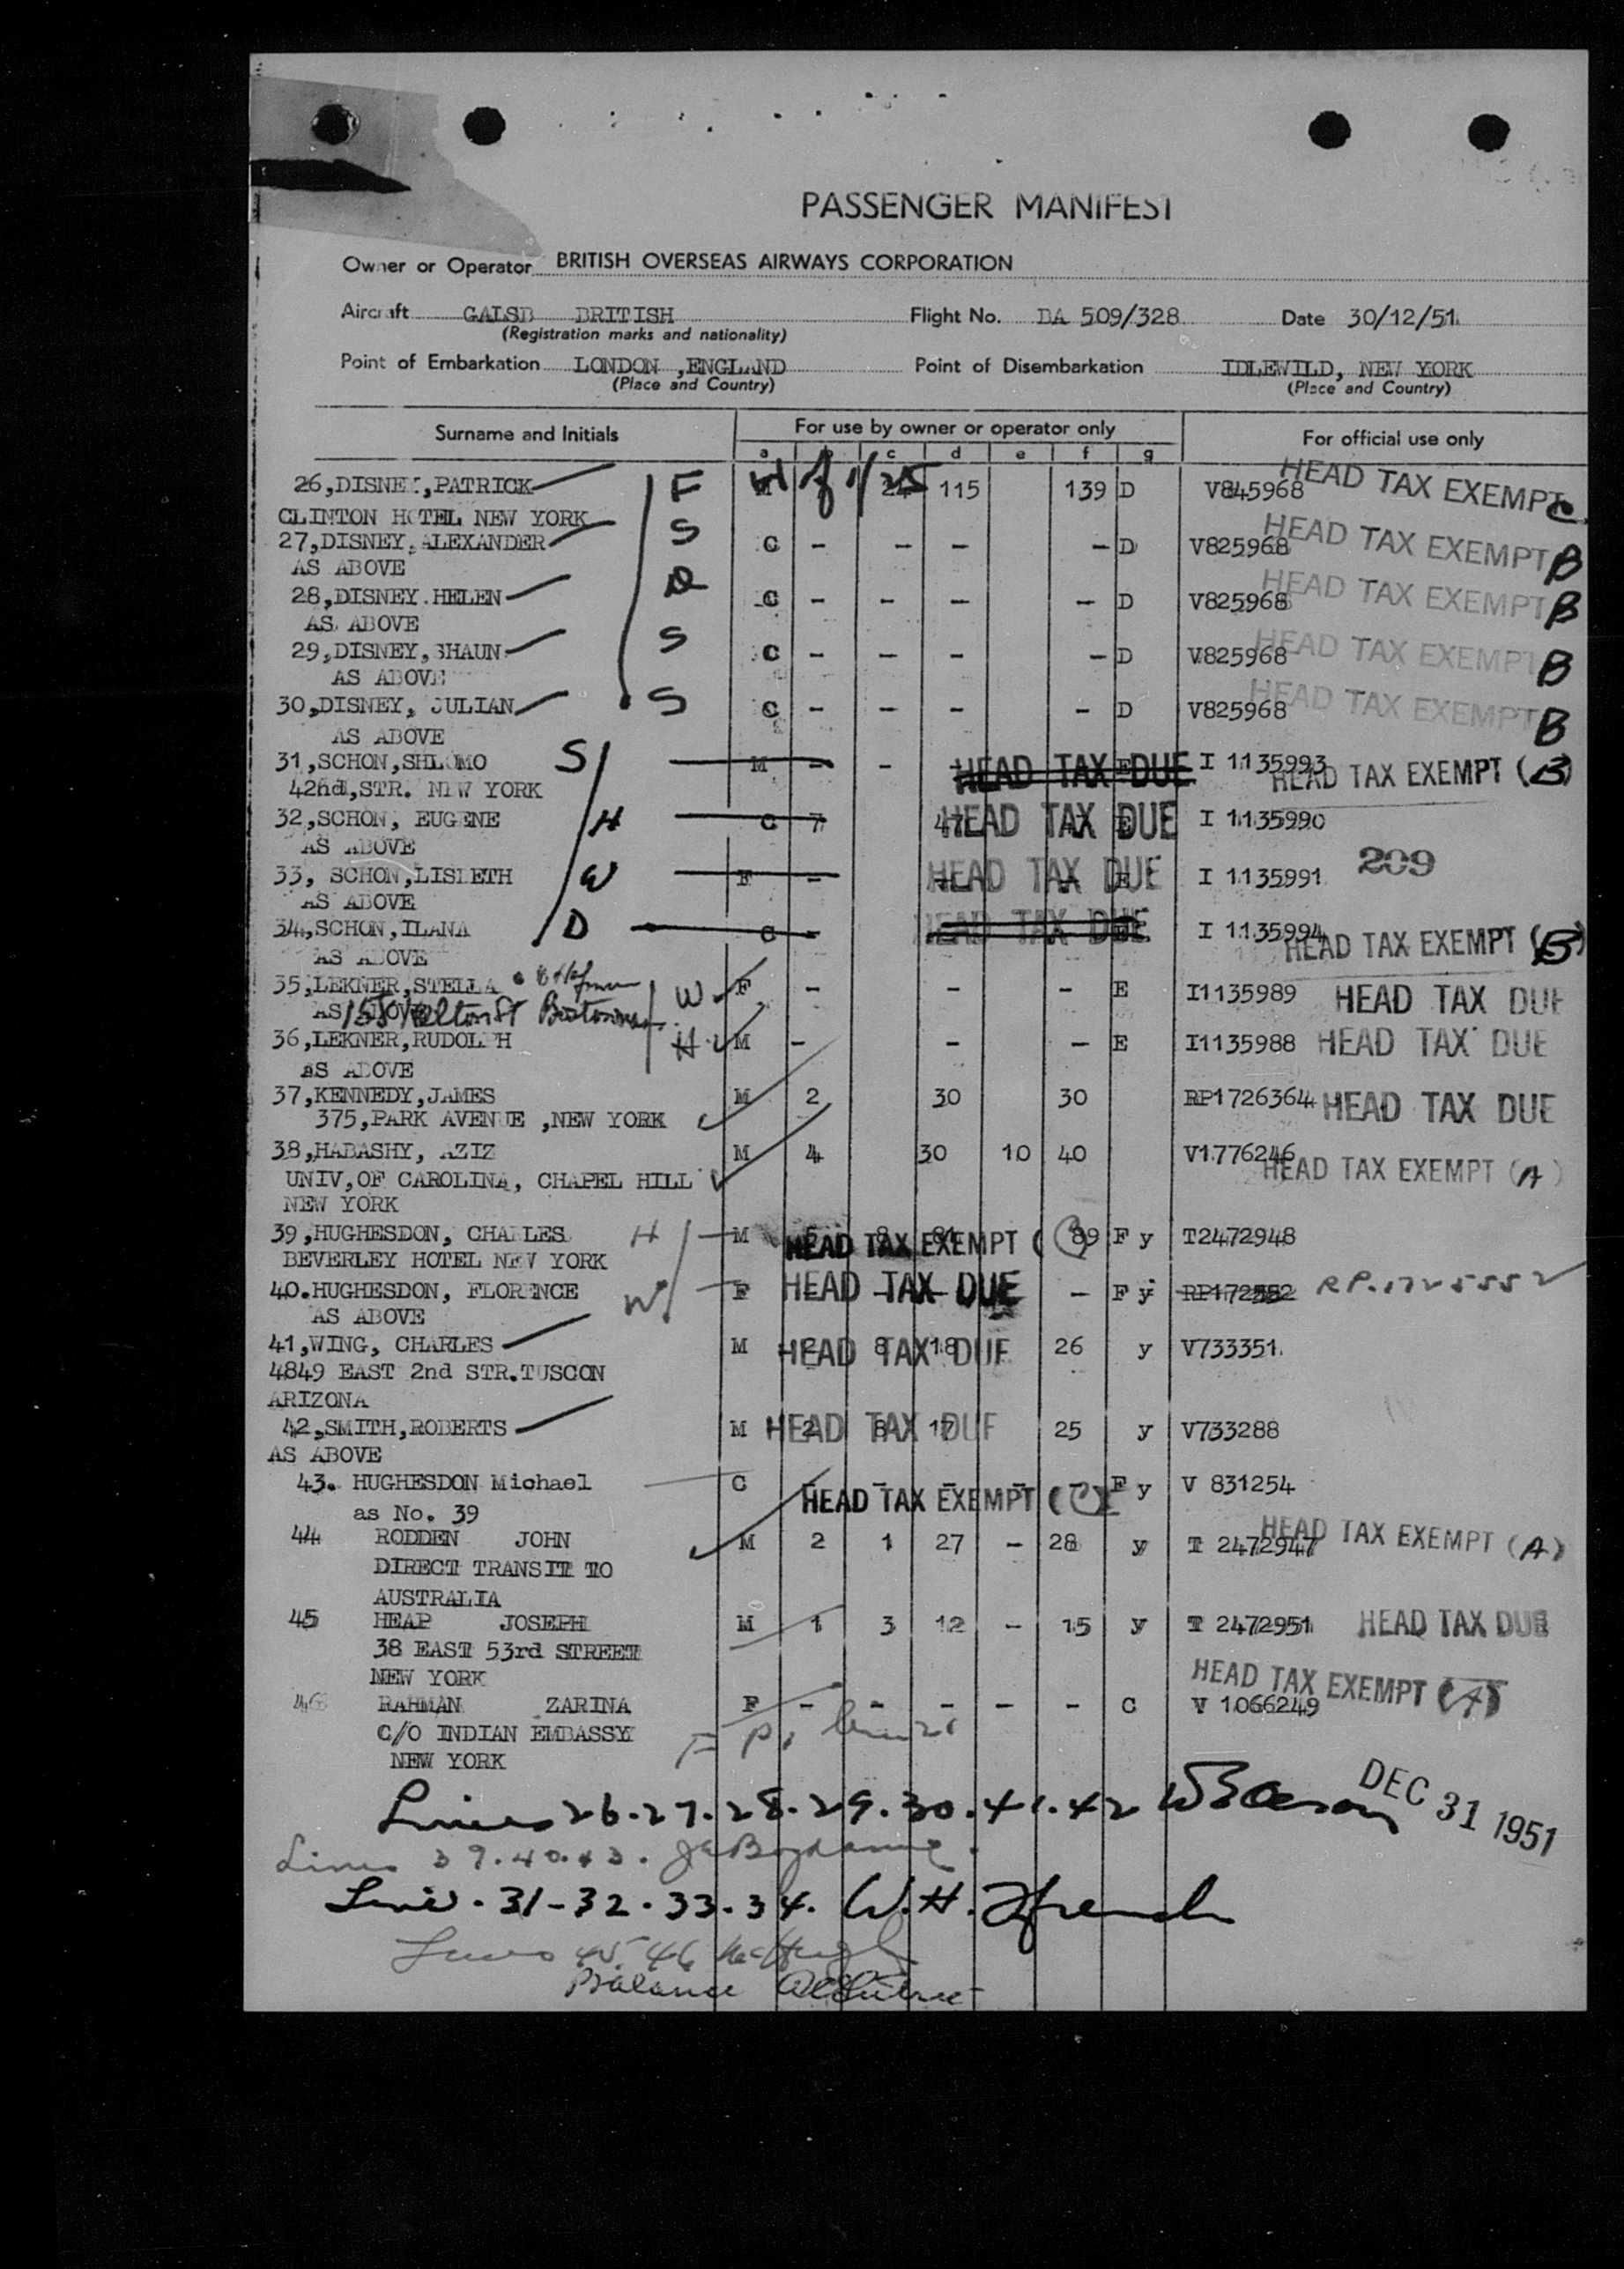 PASSENGER MANIFEST
Owner or Operator BRITISH OVERSEAS AIRWAYS CORPORATION
Aircraft GALSB BRITISH Flight No. BA 509/328 Date 30/12/51
(Registration marks and nationality)
Point of Embarkation LONDON ,ENGLAND Point of Disembarkation IDLEWILD, NEW YORK
(Place and Country) (Place and Country)
Surname and Initials For use by owner or operator only For official use only
a b c d e f g
26,DISNEY,PATRICK F 115 139 D V845968 HEAD TAX EXEMPT C
CLINTON HOTEL NEW YORK
27,DISNEY,ALEXANDER S C - - - - D V825968 HEAD TAX EXEMPT B
AS ABOVE
28,DISNEY.HELEN D C - - - - D V825968 HEAD TAX EXEMPT B
AS ABOVE
29,DISNEY,SHAUN S C - - - - D V825968 HEAD TAX EXEMPT B
AS ABOVE
30,DISNEY, JULIAN S C - - - - D V825968 HEAD TAX EXEMPT B
AS ABOVE
31,SCHON,SHLOMO S M - - HEAD TAX DUE I 1135993 HEAD TAX EXEMPT (B)
42nd,STR. NEW YORK
32,SCHON, EUGENE H C 7 47 HEAD TAX DUE I 1135990
AS ABOVE
33, SCHON,LISLETH W F - HEAD TAX DUE I 1135991 209
AS ABOVE
34,SCHON,ILANA D C - HEAD TAX DUE I 1135994 HEAD TAX EXEMPT (B)
AS ABOVE
35,LEKNER,STELLA W F - - - E I1135989 HEAD TAX DUE
AS ABOVE 155 St Boston
36,LEKNER,RUDOLPH H M - - - E I1135988 HEAD TAX DUE
AS ABOVE
37,KENNEDY,JAMES M 2 30 30 RP1726364 HEAD TAX DUE
375,PARK AVENUE ,NEW YORK
38,HABASHY, AZIZ M 4 30 10 40 V1776246 HEAD TAX EXEMPT (A)
UNIV,OF CAROLINA, CHAPEL HILL
NEW YORK
39,HUGHESDON, CHARLES H M 8 81 HEAD TAX EXEMPT ( 89 F y T2472948
BEVERLEY HOTEL NEW YORK
40.HUGHESDON, FLORENCE W F HEAD TAX DUE - F y RP172552 RP.1725552
AS ABOVE
41,WING, CHARLES M 2 8 18 HEAD TAX DUE 26 y V733351
4849 EAST 2nd STR.TUSCON
ARIZONA
42,SMITH,ROBERTS M 2 8 17 HEAD TAX DUE 25 y V733288
AS ABOVE
43. HUGHESDON Michael C - - - - HEAD TAX EXEMPT (C) F y V 831254
as No. 39
44 RODDEN JOHN M 2 1 27 - 28 y T 2472947 HEAD TAX EXEMPT (A)
DIRECT TRANSIT TO
AUSTRALIA
45 HEAP JOSEPH M 1 3 12 - 15 y T 2472951 HEAD TAX DUE
38 EAST 53rd STREET
NEW YORK
46 RAHMAN ZARINA F - - - - - C V 1066249 HEAD TAX EXEMPT (A)
C/O INDIAN EMBASSY
NEW YORK
Lines 26.27.28.29.30.41.42 DEC 31 1951
Lines 39.40.43.
Line. 31-32.33.34. W.H. French
Lines 45 46
Balance